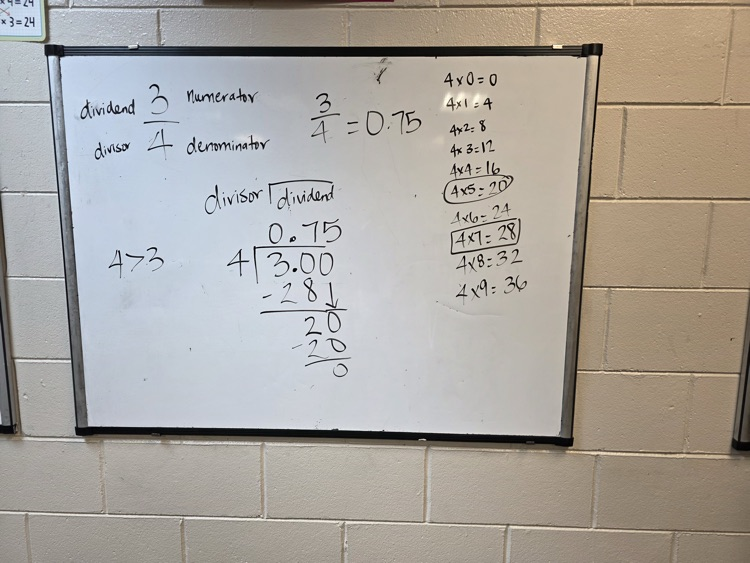 × 4 = 24
× 3 = 24
dividend 3 numerator
divisor 4 denominator
3/4 = 0.75
divisor dividend
0.75
4 3.00
4>3
-28↓
20
-20
0
4×0=0
4×1=4
4×2=8
4×3=12
4×4=16
4×5=20
4×6=24
4×7=28
4×8=32
4×9=36